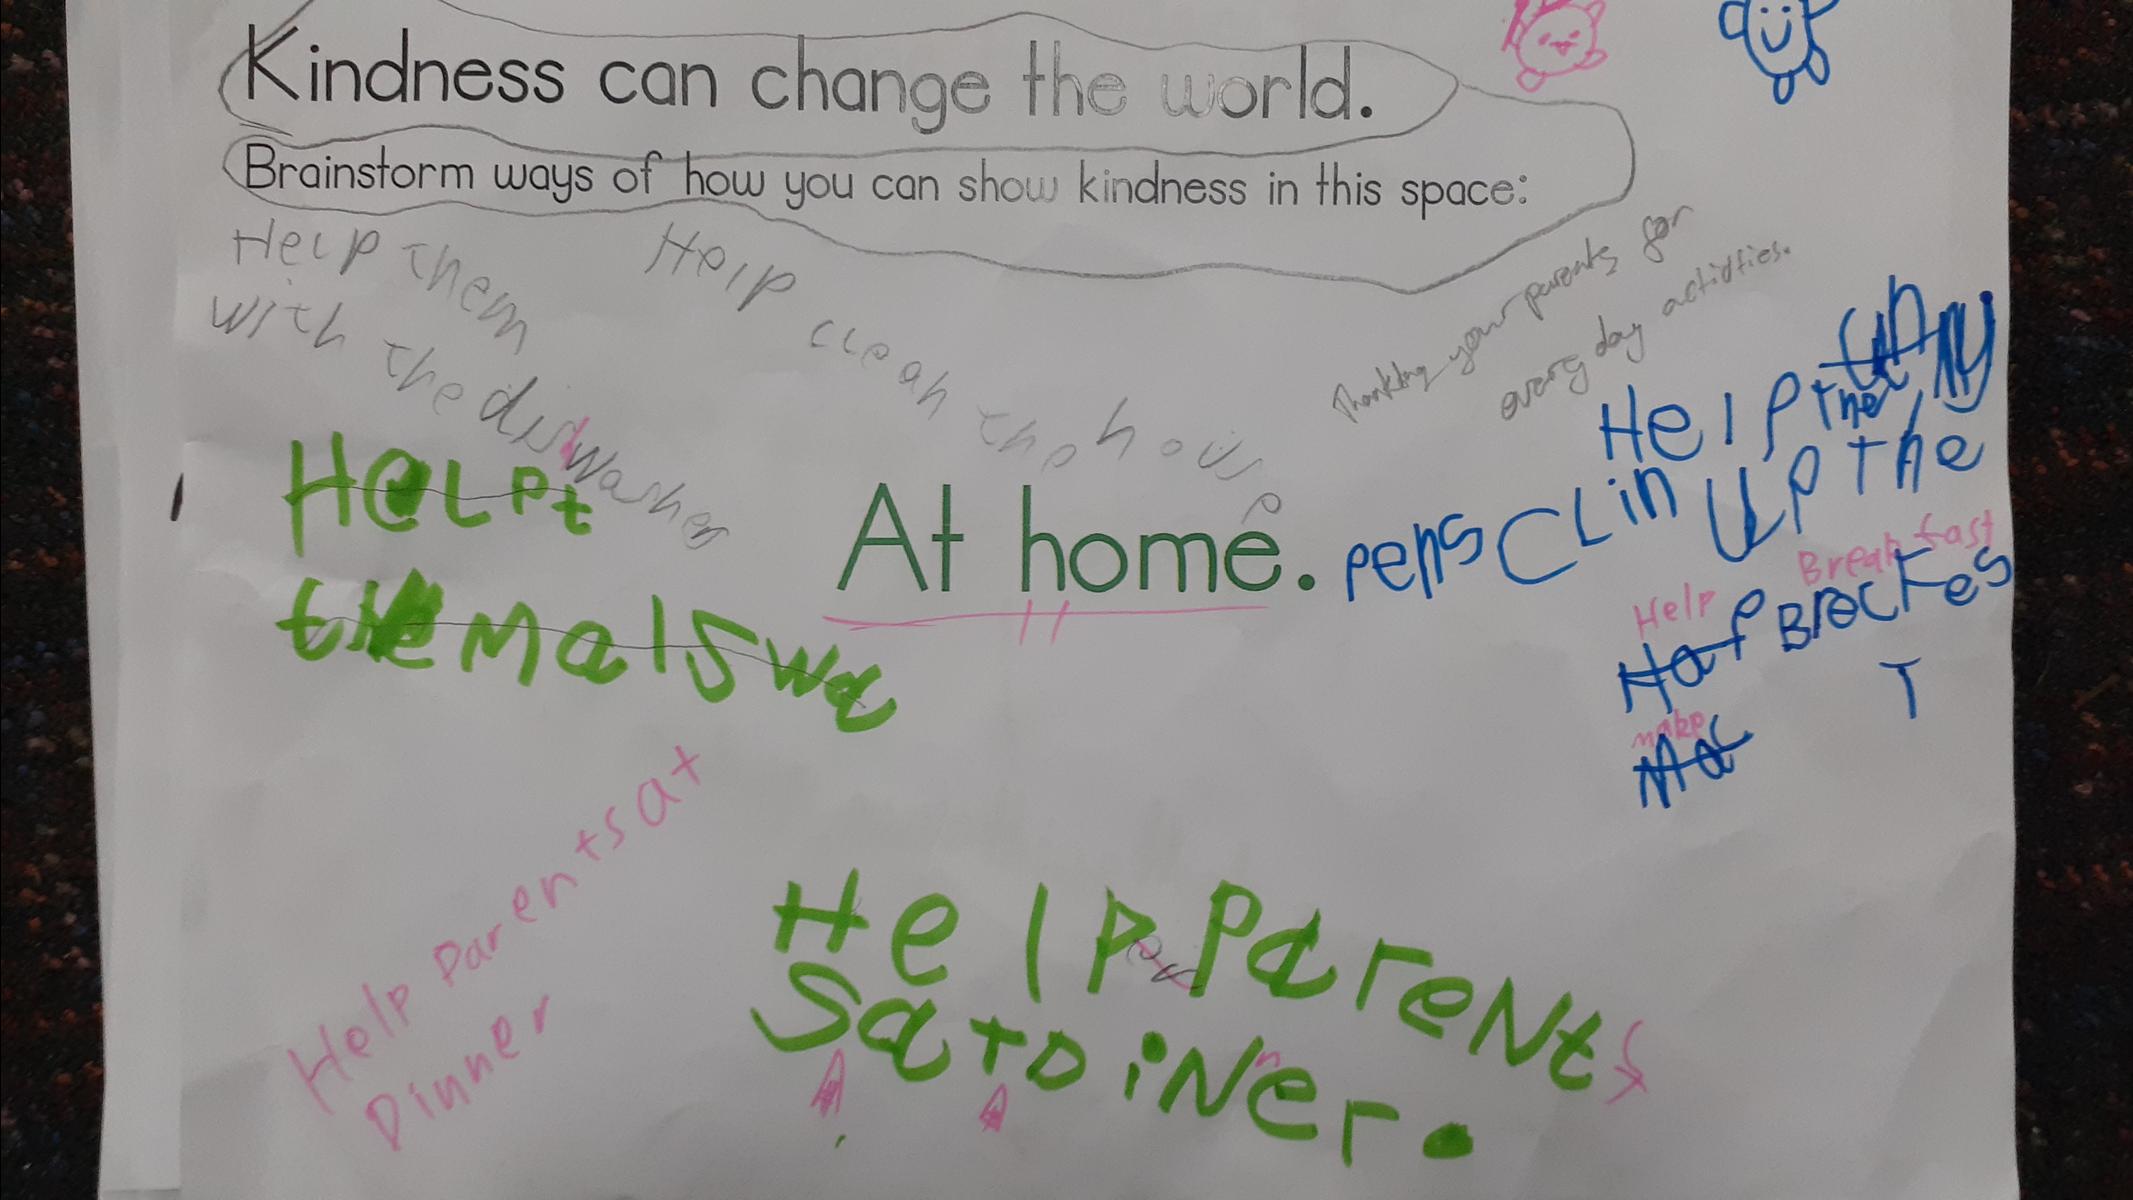 Kindness can change the world.
Brainstorm ways of how you can show kindness in this space:
Help them
with the diswasher
Help clean the house
Thanking your parents for
every day activities.
HelP
the
pens CLin UP The
HeLPt
them alswa
At home.
Breakfast
Help
Haf Brecfes
T
make
Mac
Help Parents at
Dinner
HelP Parents
Sat Diner.